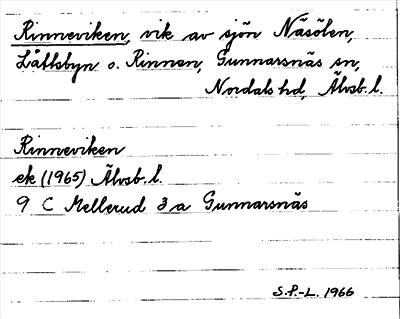 Rinneviken, vik av sjön Näsölen,
Låttsbyn o. Rinnen, Gunnarsnäs sn,
Nordals hd, Älvsb. l.
Rinneviken
ek (1965) Älvsb. l.
9 C Mellerud 3 a Gunnarsnäs
S.F.-L. 1966